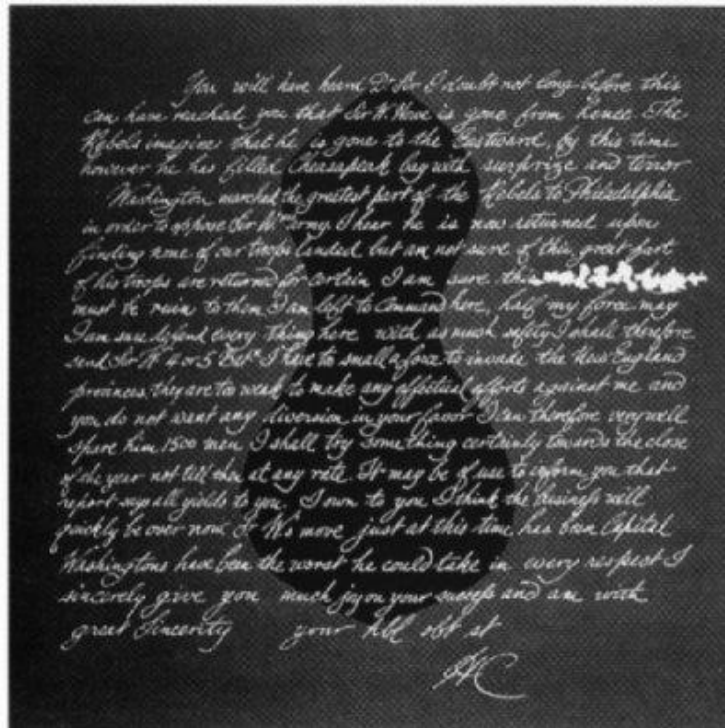 You will have heard Dr Sir I doubt not long before this
can have reached you that Sir W. Howe is gone from hence. The
Rebels imagine that he is gone to the Eastward, by this time
however he has filled Cheasapeak bay with surprize and terror
Washington marched the greatest part of the Rebels to Philadelphia
in order to oppose Sir Wms army. I hear he is now returned upon
finding none of our troops landed but am not sure of this great part
of his troops are returned for certain I am sure this
must be ruin to them I am left to command here, half my force may
I am sure defend every thing here with as much safety I shall therefore
send Sir W. 4 or 5 Batns I have to small a force to invade the New England
provinces they are too weak to make any effectual efforts against me and
you do not want any diversion in your favor I can therefore very well
spare him 1500 men I shall try some thing certainly towards the close
of the year not till then at any rate. It may be of use to inform you that
report says all yields to you. I own to you I think the business will
quickly be over now. Sr W's move just at this time has been Capital
Washingtons have been the worst he could take in every respect I
sincerely give you much joy on your success and am with
great Sincerity your hbl obt st
HC